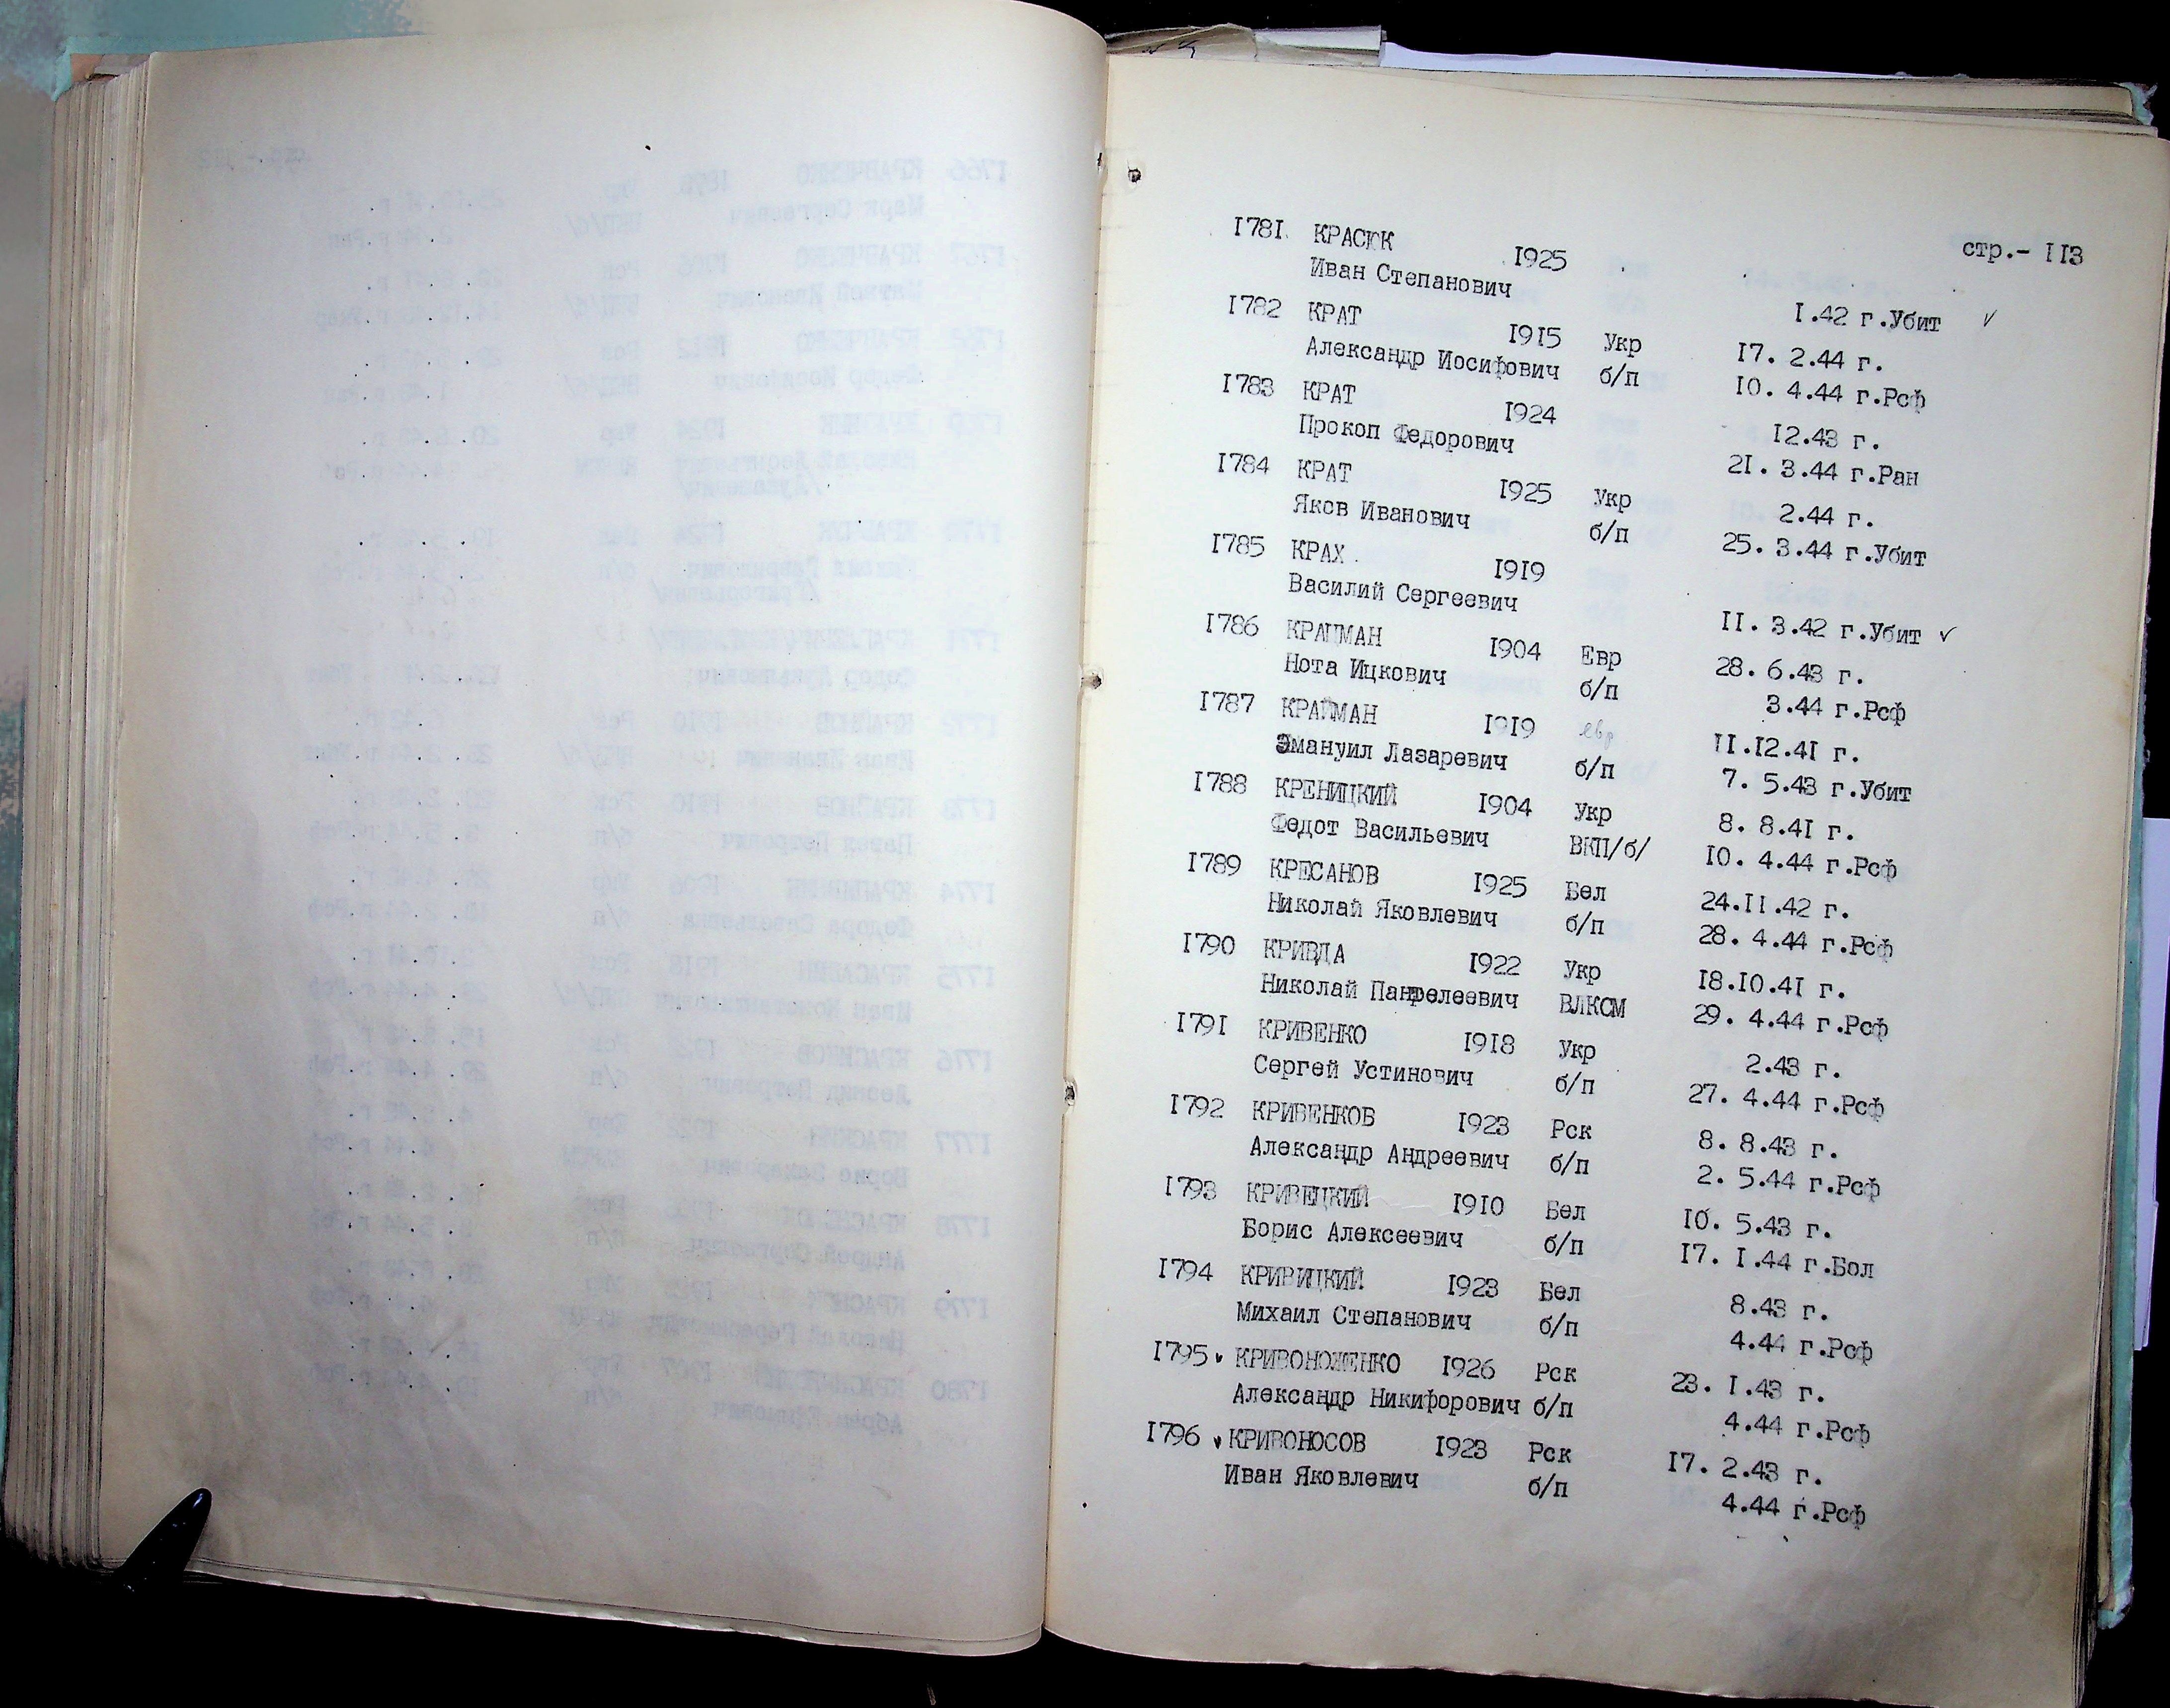 стр.- 113
1781. КРАСЮК 1925
Иван Степанович 1.42 г.Убит ✓
1782 КРАТ 1915 Укр 17. 2.44 г.
Александр Иосифович б/п 10. 4.44 г.Рсф
1783 КРАТ 1924 12.43 г.
Прокоп Федорович 21. 3.44 г.Ран
1784 КРАТ 1925 Укр 2.44 г.
Яков Иванович б/п 25. 3.44 г.Убит
1785 КРАХ 1919
Василий Сергеевич 11. 3.42 г.Убит ✓
1786 КРАЦМАН 1904 Евр 28. 6.43 г.
Нота Ицкович б/п 3.44 г.Рсф
1787 КРАЙМАН 1919 евр 11.12.41 г.
Эмануил Лазаревич б/п 7. 5.43 г.Убит
1788 КРЕНИЦКИЙ 1904 Укр 8. 8.41 г.
Федот Васильевич ВКП/б/ 10. 4.44 г.Рсф
1789 КРЕСАНОВ 1925 Бел 24.11.42 г.
Николай Яковлевич б/п 28. 4.44 г.Рсф
1790 КРИВДА 1922 Укр 18.10.41 г.
Николай Панфелеевич ВЛКСМ 29. 4.44 г.Рсф
1791 КРИВЕНКО 1918 Укр 2.43 г.
Сергей Устинович б/п 27. 4.44 г.Рсф
1792 КРИВЕНКОВ 1923 Рск 8. 8.43 г.
Александр Андреевич б/п 2. 5.44 г.Рсф
1793 КРИВЕЦКИЙ 1910 Бел 10. 5.43 г.
Борис Алексеевич б/п 17. 1.44 г.Бол
1794 КРИВИЦКИЙ 1923 Бел 8.43 г.
Михаил Степанович б/п 4.44 г.Рсф
1795 ✓ КРИВОНОЖЕНКО 1926 Рск 23. 1.43 г.
Александр Никифорович б/п 4.44 г.Рсф
1796 ✓ КРИВОНОСОВ 1923 Рск 17. 2.43 г.
Иван Яковлевич б/п 4.44 г.Рсф